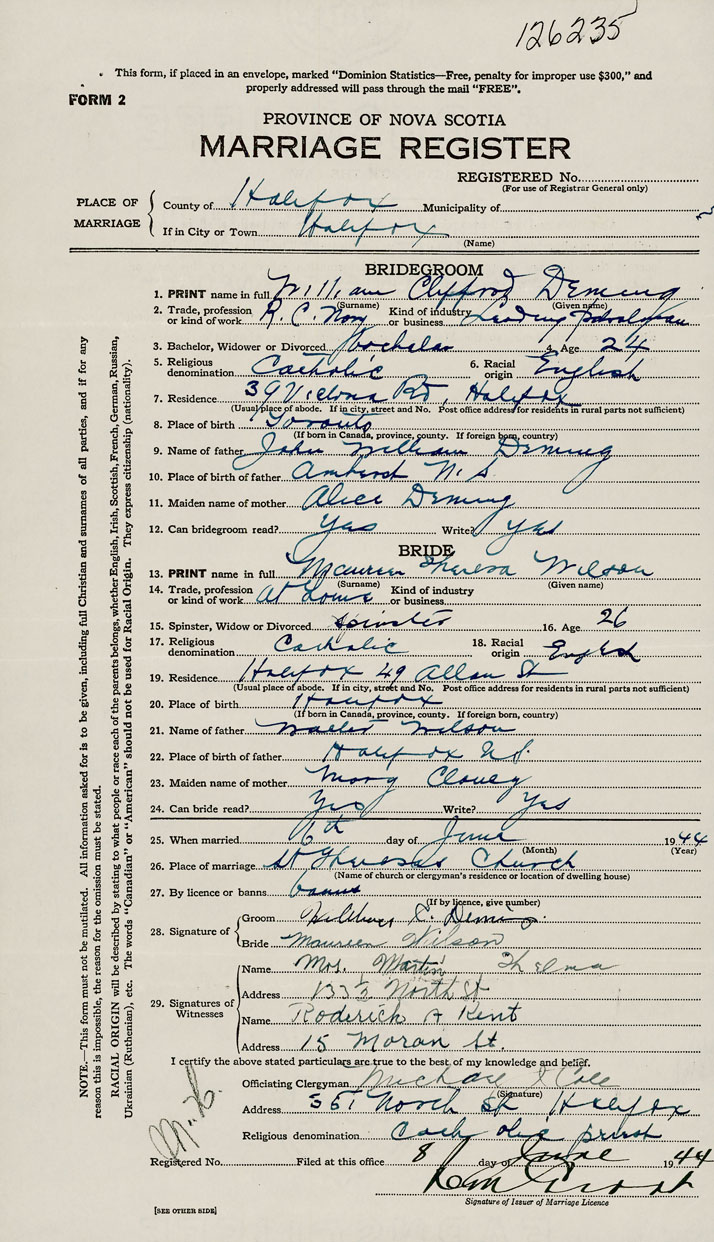 126235
This form, if placed in an envelope, marked "Dominion Statistics—Free, penalty for improper use $300," and
properly addressed will pass through the mail "FREE".
FORM 2
PROVINCE OF NOVA SCOTIA
MARRIAGE REGISTER
REGISTERED No.
(For use of Registrar General only)
PLACE OF MARRIAGE
County of Halifax Municipality of
If in City or Town Halifax
(Name)
BRIDEGROOM
1. PRINT name in full William Clifford Deming
(Surname) (Given name)
2. Trade, profession or kind of work R. C. Navy Kind of industry or business Leading Patrolman
3. Bachelor, Widower or Divorced Bachelor 4. Age 24
5. Religious denomination Catholic 6. Racial origin English
7. Residence 39 Victoria Rd, Halifax
(Usual place of abode. If in city, street and No. Post office address for residents in rural parts not sufficient)
8. Place of birth Toronto
(If born in Canada, province, county. If foreign born, country)
9. Name of father John William Deming
10. Place of birth of father Amherst N.S
11. Maiden name of mother Alice Deming
12. Can bridegroom read? Yes Write? Yes
BRIDE
13. PRINT name in full Maureen Theresa Wilson
(Surname) (Given name)
14. Trade, profession or kind of work at home Kind of industry or business
15. Spinster, Widow or Divorced Spinster 16. Age 26
17. Religious denomination Catholic 18. Racial origin English
19. Residence Halifax 49 Allan St
(Usual place of abode. If in city, street and No. Post office address for residents in rural parts not sufficient)
20. Place of birth Halifax
(If born in Canada, province, county. If foreign born, country)
21. Name of father Walter Wilson
22. Place of birth of father Halifax N.S.
23. Maiden name of mother Mary Clancy
24. Can bride read? Yes Write? Yes
25. When married 6th day of June 1944
(Month) (Year)
26. Place of marriage St Theresas Church
(Name of church or clergyman's residence or location of dwelling house)
27. By licence or banns banns
(If by licence, give number)
28. Signature of
Groom C. Deming
Bride Maureen Wilson
29. Signatures of Witnesses
Name Mrs. Martin Thelma
Address 133½ North St
Name Roderick A Kent
Address 15 Moran St.
I certify the above stated particulars are true to the best of my knowledge and belief.
Officiating Clergyman Michael J Cole
(Signature)
Address 351 North St Halifax
Religious denomination Catholic priest
Registered No. Filed at this office 8 day of June 1944
Signature of Issuer of Marriage Licence
[SEE OTHER SIDE]
NOTE.—This form must not be mutilated. All information asked for is to be given, including full Christian and surnames of all parties, and if for any
reason this is impossible, the reason for the omission must be stated.
RACIAL ORIGIN will be described by stating to what people or race each of the parents belongs, whether English, Irish, Scottish, French, German, Russian,
Ukrainian (Ruthenian), etc. The words "Canadian" or "American" should not be used for Racial Origin. They express citizenship (nationality).